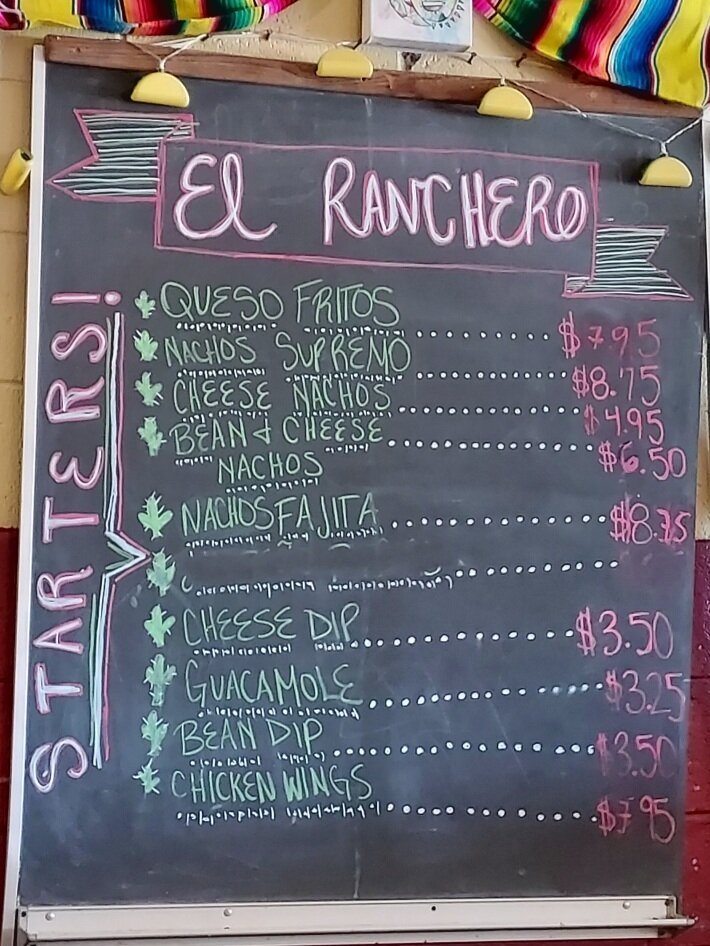 El RANCHERO
STARTERS!
QUESO FRITOS $7.95
NACHOS SUPREMO $8.75
CHEESE NACHOS $4.95
BEAN & CHEESE $6.50
NACHOS
NACHOS FAJITA $8.75
CHEESE DIP $3.50
GUACAMOLE $3.25
BEAN DIP $3.50
CHICKEN WINGS
$7.95